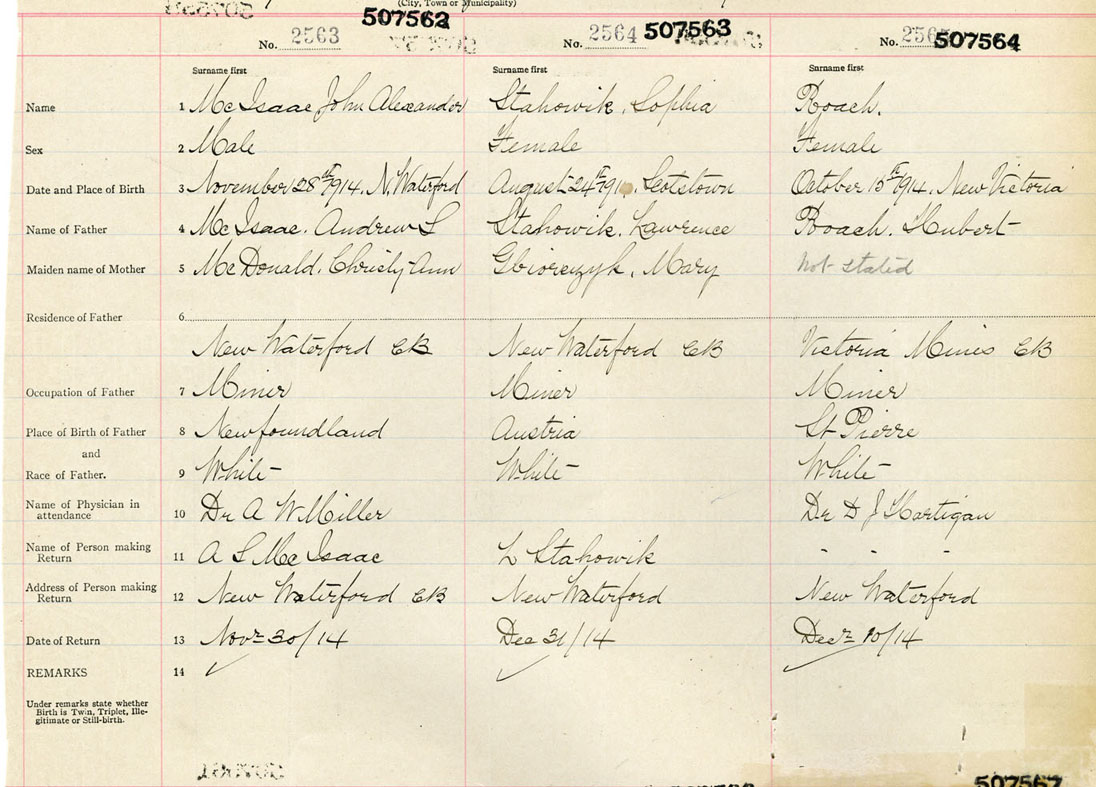 (City, Town or Municipality)
507562 507563 507564
No. 2563 No. 2564 No. 256
Surname first Surname first Surname first
Name 1 McIsaac John Alexander Stahowik, Sophia Roach.
Sex 2 Male Female Female
Date and Place of Birth 3 November 28th 1914. N. Waterford August 24th 191 . Scotstown October 15th 1914. New Victoria
Name of Father 4 McIsaac. Andrew S Stahowik. Lawrence Roach. Hubert
Maiden name of Mother 5 McDonald. Christy Ann Mary Not Stated
Residence of Father 6
New Waterford CB New Waterford CB Victoria Mines CB
Occupation of Father 7 Miner Miner Miner
Place of Birth of Father 8 Newfoundland Austria St Pierre
and
Race of Father. 9 White White White
Name of Physician in
attendance 10 Dr A W Miller Dr D J Hartigan
Name of Person making
Return 11 A S McIsaac L Stahowik - - -
Address of Person making
Return 12 New Waterford CB New Waterford New Waterford
Date of Return 13 Novr 30/14 Dec 31/14 Decr 10/14
REMARKS 14
Under remarks state whether
Birth is Twin, Triplet, Ille-
gitimate or Still-birth.
507567